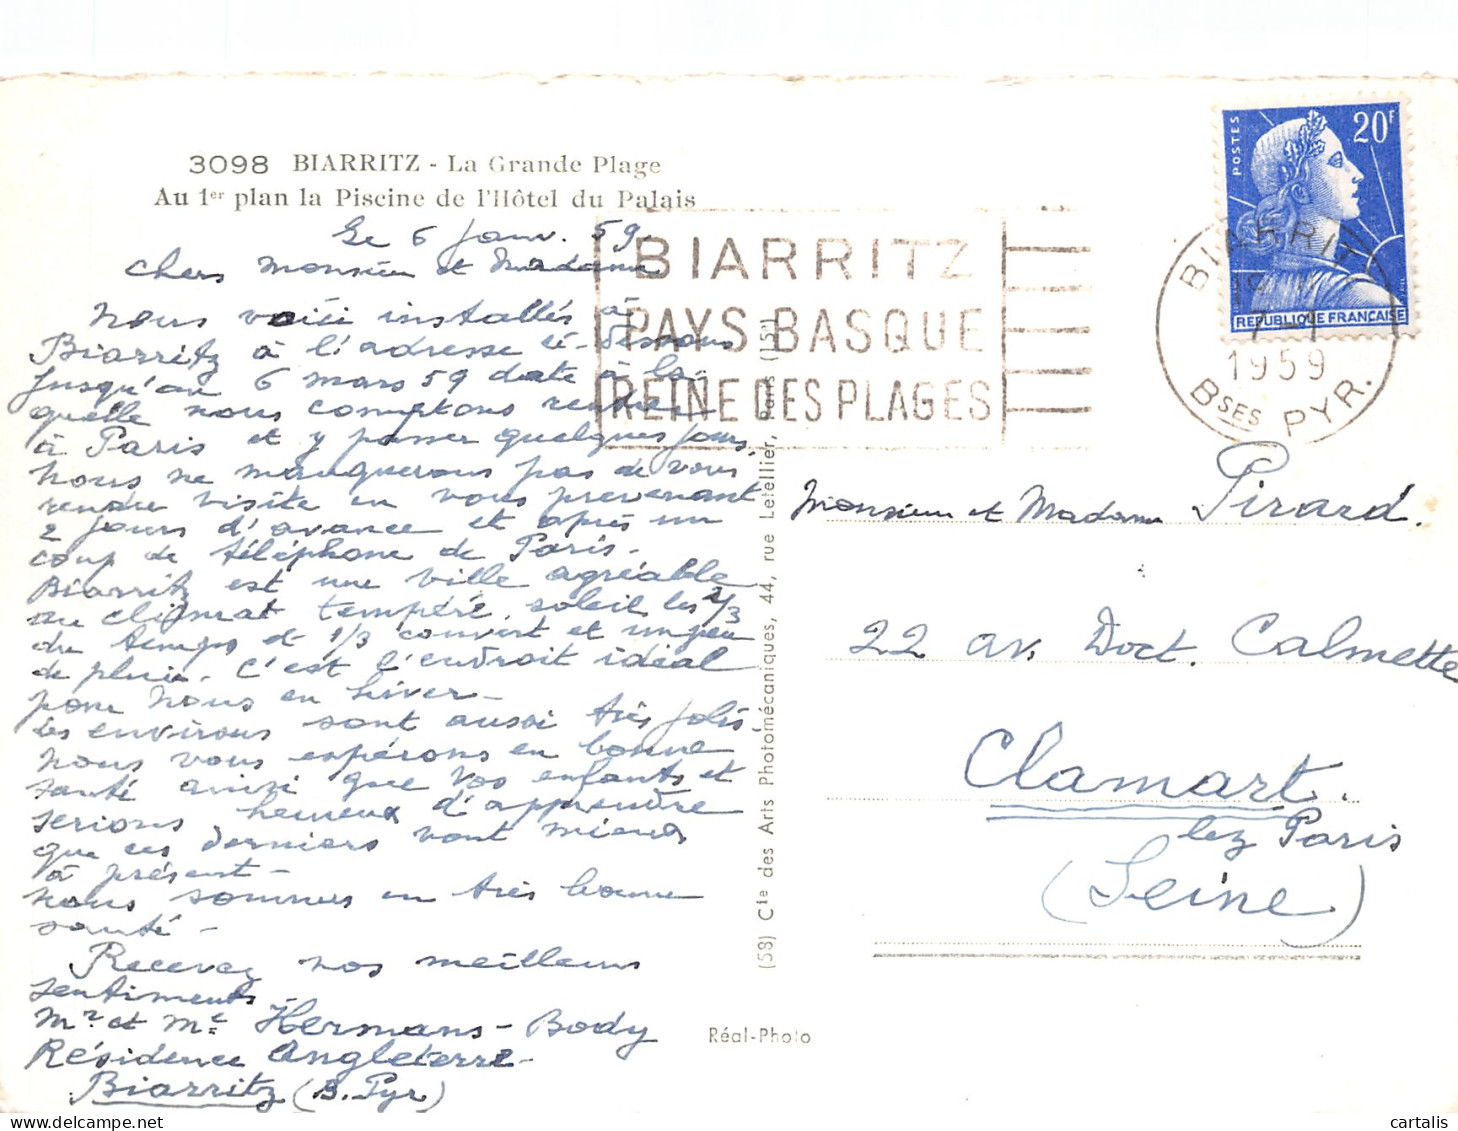 3098 BIARRITZ - La Grande Plage
Au 1er plan la Piscine de l'Hôtel du Palais
Le 6 janv. 59.
Chers Monsieur et Madame
Nous voici installés à
Biarritz à l'adresse ci-dessous
jusqu'au 6 mars 59 date à la-
quelle nous comptons rentrer
à Paris et y passer quelques jours.
Nous ne manquerons pas de vous
rendre visite en vous prévenant
2 jours d'avance et après un
coup de téléphone de Paris.
Biarritz est une ville agréable
au climat tempéré, soleil les 2/3
du temps et 1/3 couvert et un peu
de pluie. C'est l'endroit idéal
pour nous en hiver -
Les environs sont aussi très jolis
Nous vous espérons en bonne
santé ainsi que vos enfants et
serions heureux d'apprendre
que ces derniers vont mieux
à présent -
Nous sommes en très bonne
santé -
Recevez nos meilleurs
sentiments
Mr et Me Hermans - Body
Résidence Angleterre -
Biarritz (B. Pyr)
BIARRITZ
PAYS BASQUE
REINE DES PLAGES
POSTES
20F
REPUBLIQUE FRANÇAISE
BIARRITZ
7-1
1959
BSES PYR.
(58) Cie des Arts Photomécaniques, 44, rue Letellier, Paris (15e)
Réal-Photo
Monsieur et Madame Pirard.
22 av. Doct. Calmette
Clamart.
lez Paris
(Seine)
cartalis